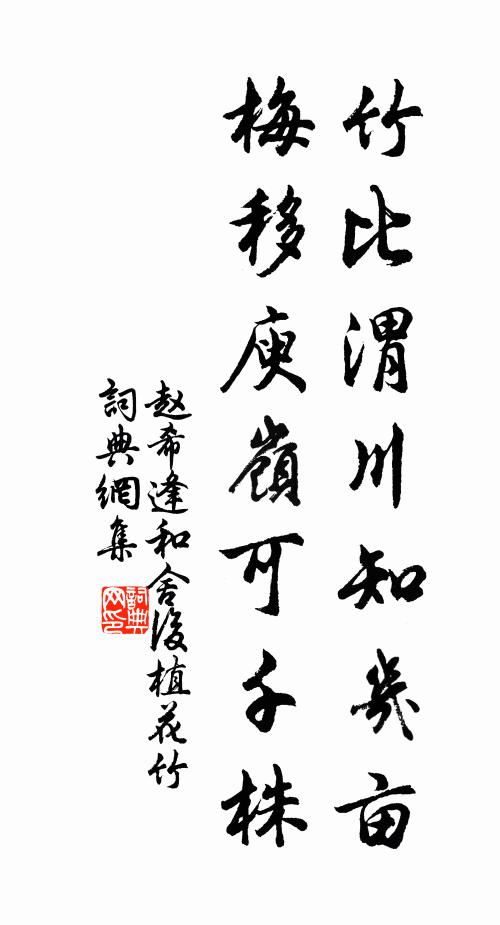 竹比渭川知幾亩
梅移庾嶺可千株
赵希逢和舍後植花竹
詞典網集
詞典网印